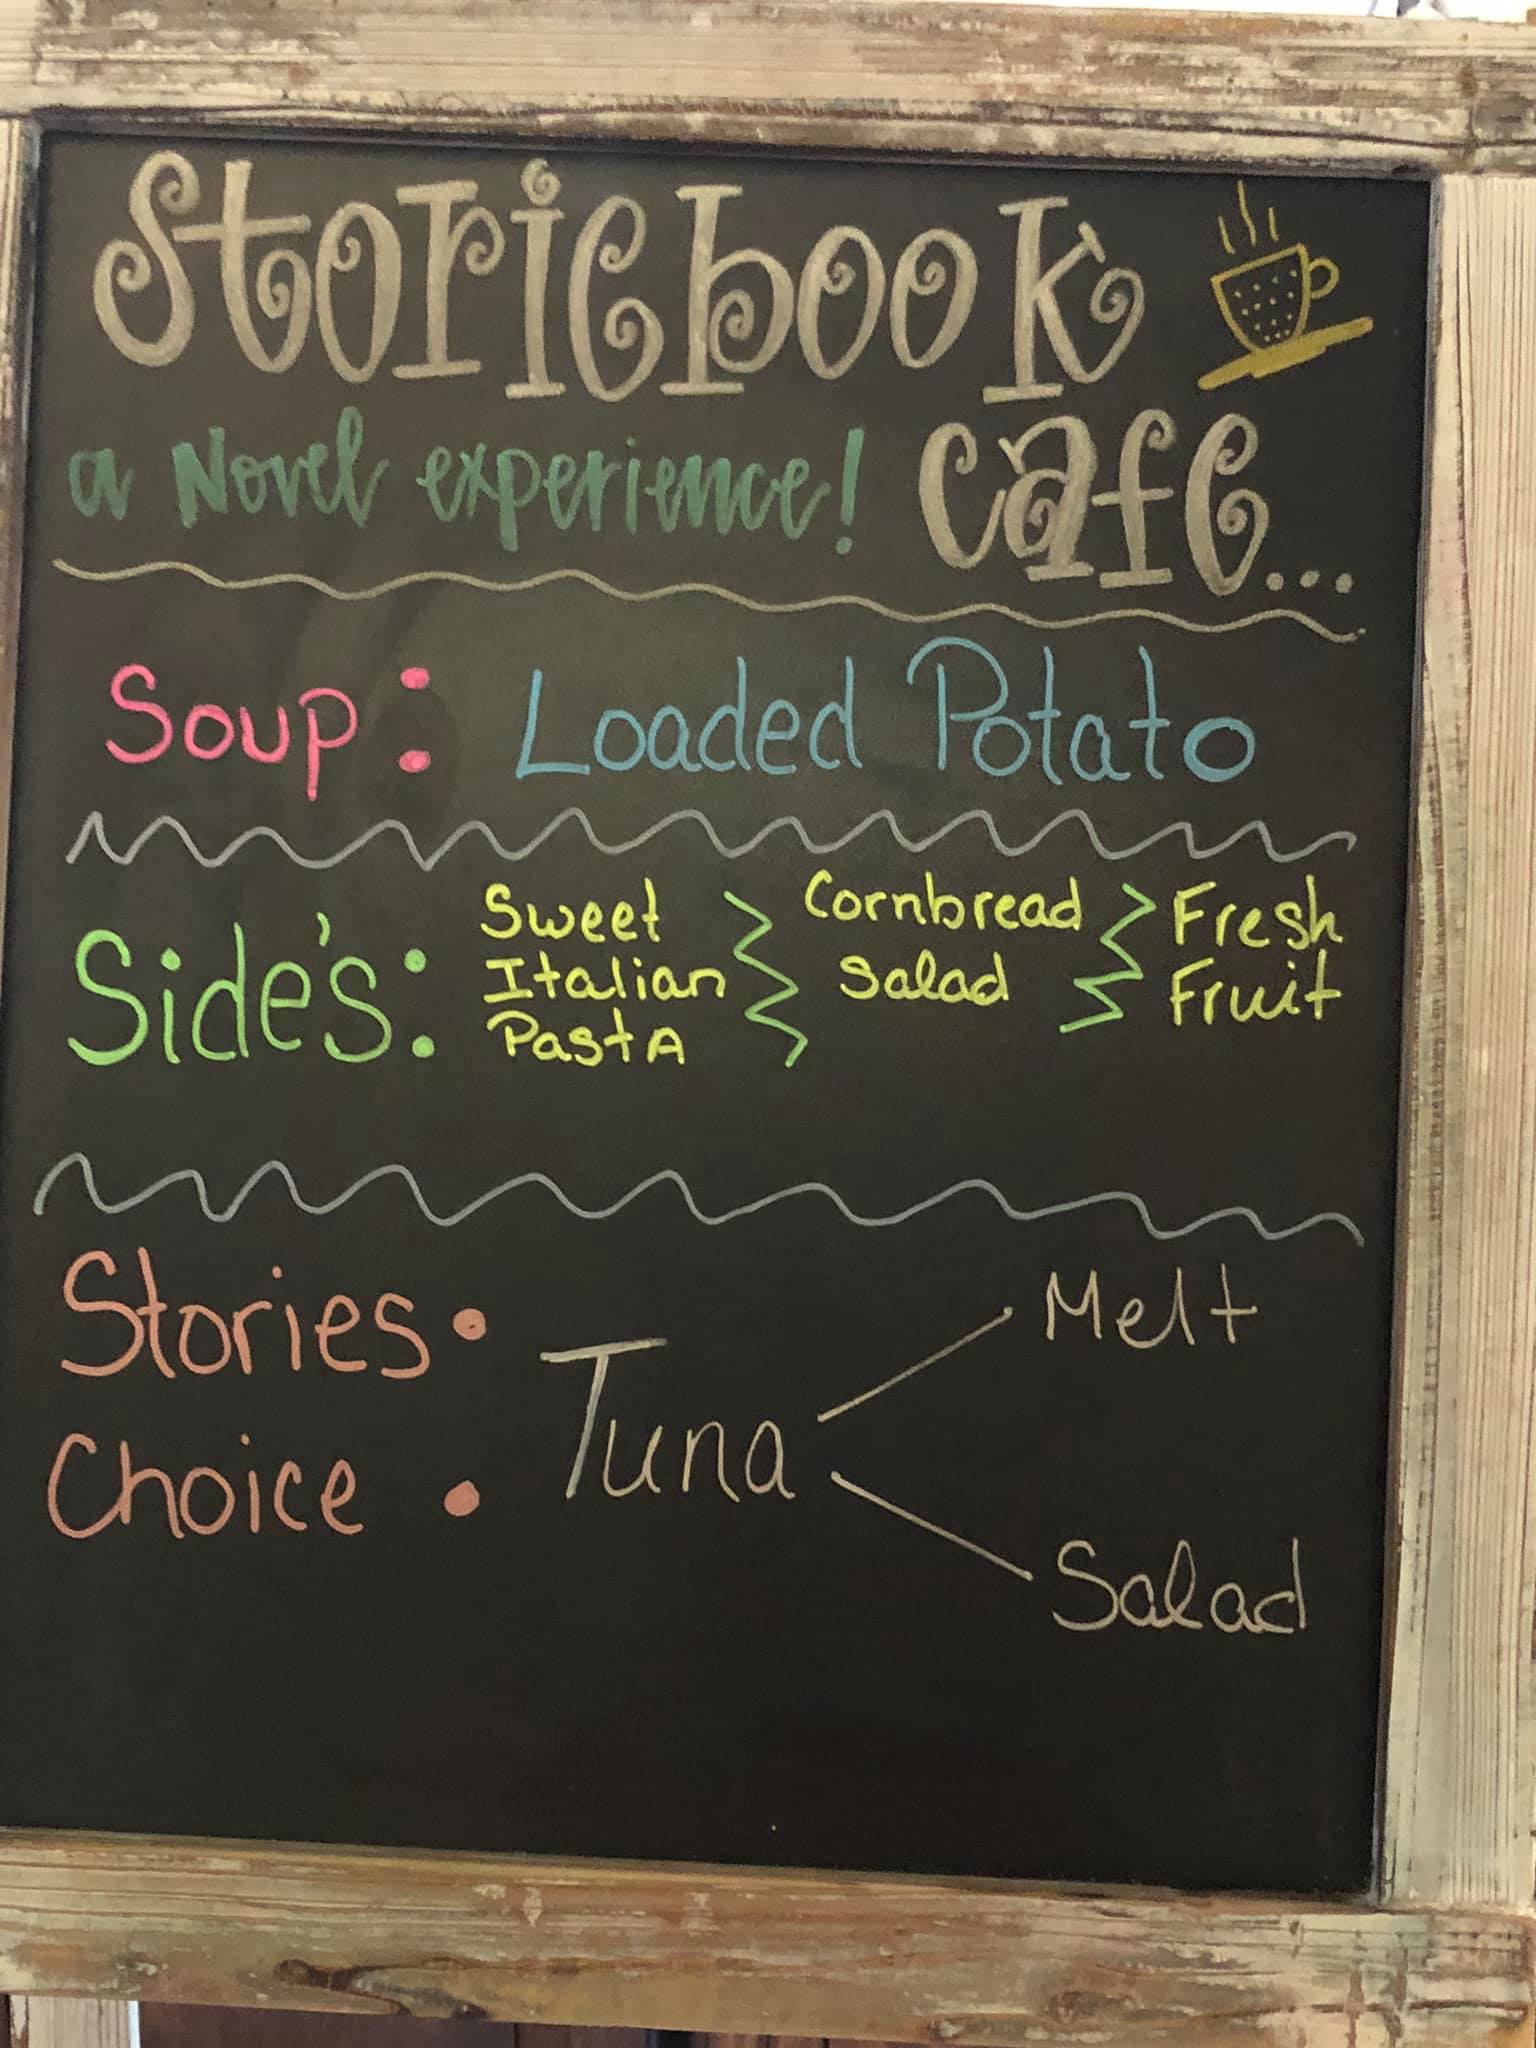 Storiebook
a Novel experience! Cafe...
Soup: Loaded Potato
Side's: Sweet Italian PastA Cornbread Salad Fresh Fruit
Stories Choice: Tuna Melt Salad